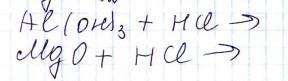 Al(OH)₃ + HCl →
MgO + HCl →